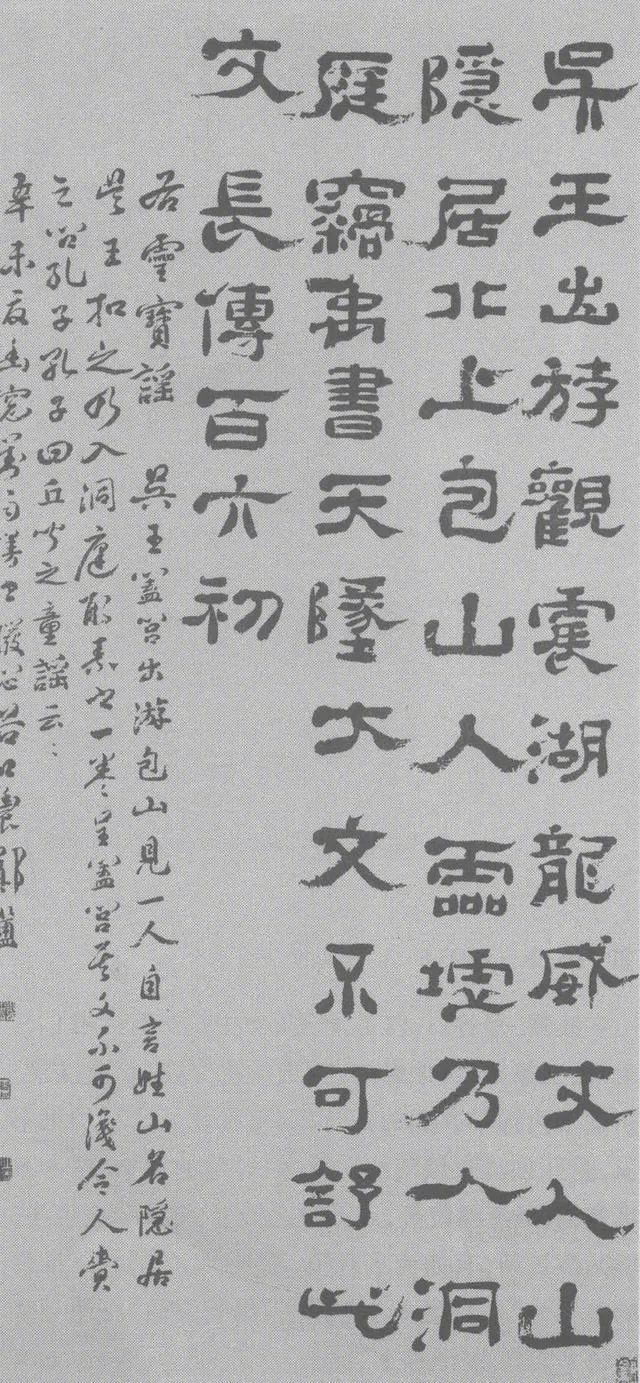 吳王出游觀震湖龍威丈人山
隱居北上包山人靈墟乃入洞
庭竊禹書天墜大文不可舒此
文長傳百六初
右靈寶謠 吳王闔閭出游包山見一人自言姓山名隱居
吳王扣之乃入洞庭取素書一卷呈闔閭其文不可識令人賫
之問孔子孔子曰丘聞之童謠云〻
辛未夏 谷口農鄭簠